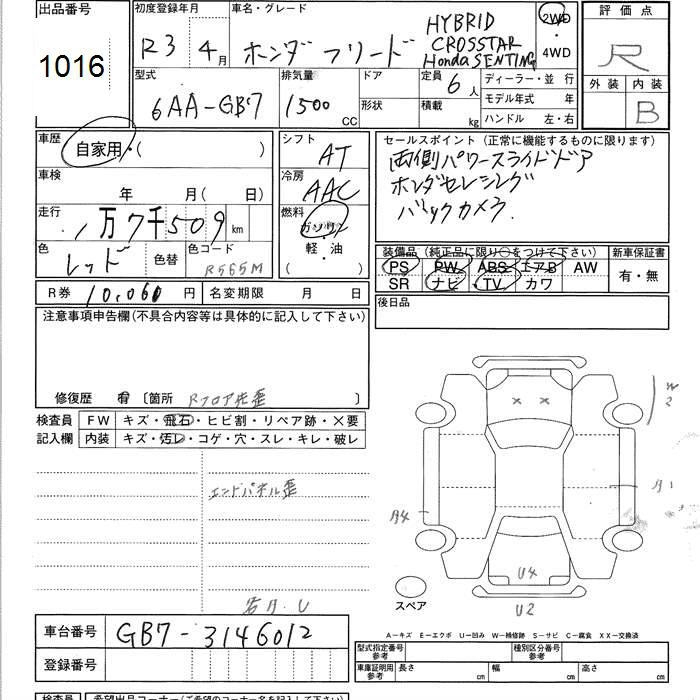 出品番号
1016
初度登録年月
R3 4月
車名・グレード
ホンダ フリード
HYBRID
CROSSTAR
Honda SENTING
2WD
・
4WD
評価点
R
外装 内装
B
型式
6AA-GB7
排気量
1500 CC
ドア
形状
定員 6人
積載 kg
ディーラー・並行
モデル年式 年
ハンドル 左・右
車歴
自家用・( )
車検
年 月(日)
走行
1万7千509 km
色
レッド
色替
色コード
R565M
シフト
AT
冷房
AAC
燃料
ガソリン
軽・油
( )
セールスポイント (正常に機能するものに限ります)
両側パワースライドドア
ホンダセンシング
バックカメラ
装備品 (純正品に限り○をつけて下さい)
新車保証書
PS PW ABS エアB AW
SR ナビ TV カワ
有・無
R券 10,060円
名変期限 月 日
後日品
注意事項申告欄(不具合内容等は具体的に記入して下さい)
修復歴 有 〔箇所 Rフロア先歪 〕
検査員
記入欄
FW キズ・飛石・ヒビ割・リペア跡・×要
内装 キズ・汚レ・コゲ・穴・スレ・キレ・破レ
エンドパネル歪
× ×
W2
A1
A4
U4
U2
スペア
A-キズ E-エクボ U-凹み W-補修跡 S-サビ C-腐食 XX-交換済
車台番号
GB7-3146012
登録番号
型式指定番号
参考
種別区分番号
参考
車庫証明用
参考
長さ cm
幅 cm
高さ cm
検査員
希望出品コーナー(ご希望のコーナー名を記入